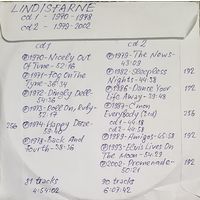 LINDISFARNE
cd 1 - 1970-1978
cd 2 - 1979-2002
cd 1
℗1970-Nicely Out
Of Tune - 52:16
℗1971-Fog On The
Tyne - 36:34
℗1972-Dingly Dell-
54:36
℗1973-Roll On, Ruby-
52:17
256 ℗1974-Happy Daze-
℗1978-Back And
Fourth - 38:36
81 tracks
4:54:02
cd 2
℗1979-The News-
43:09
℗1982-Sleepless 192
Nights-44:58
℗1986-Dance Your 192
Life Away-39:48
℗1987-C'mon
Everybody (2cd) 256
cd1-44:18
cd2-44:58
℗1989-Amigos-45:53 192
℗1993-Elvis Lives On
The Moon-54:29
℗2002-Promenade- 192
50:21
90 tracks
6:07:42